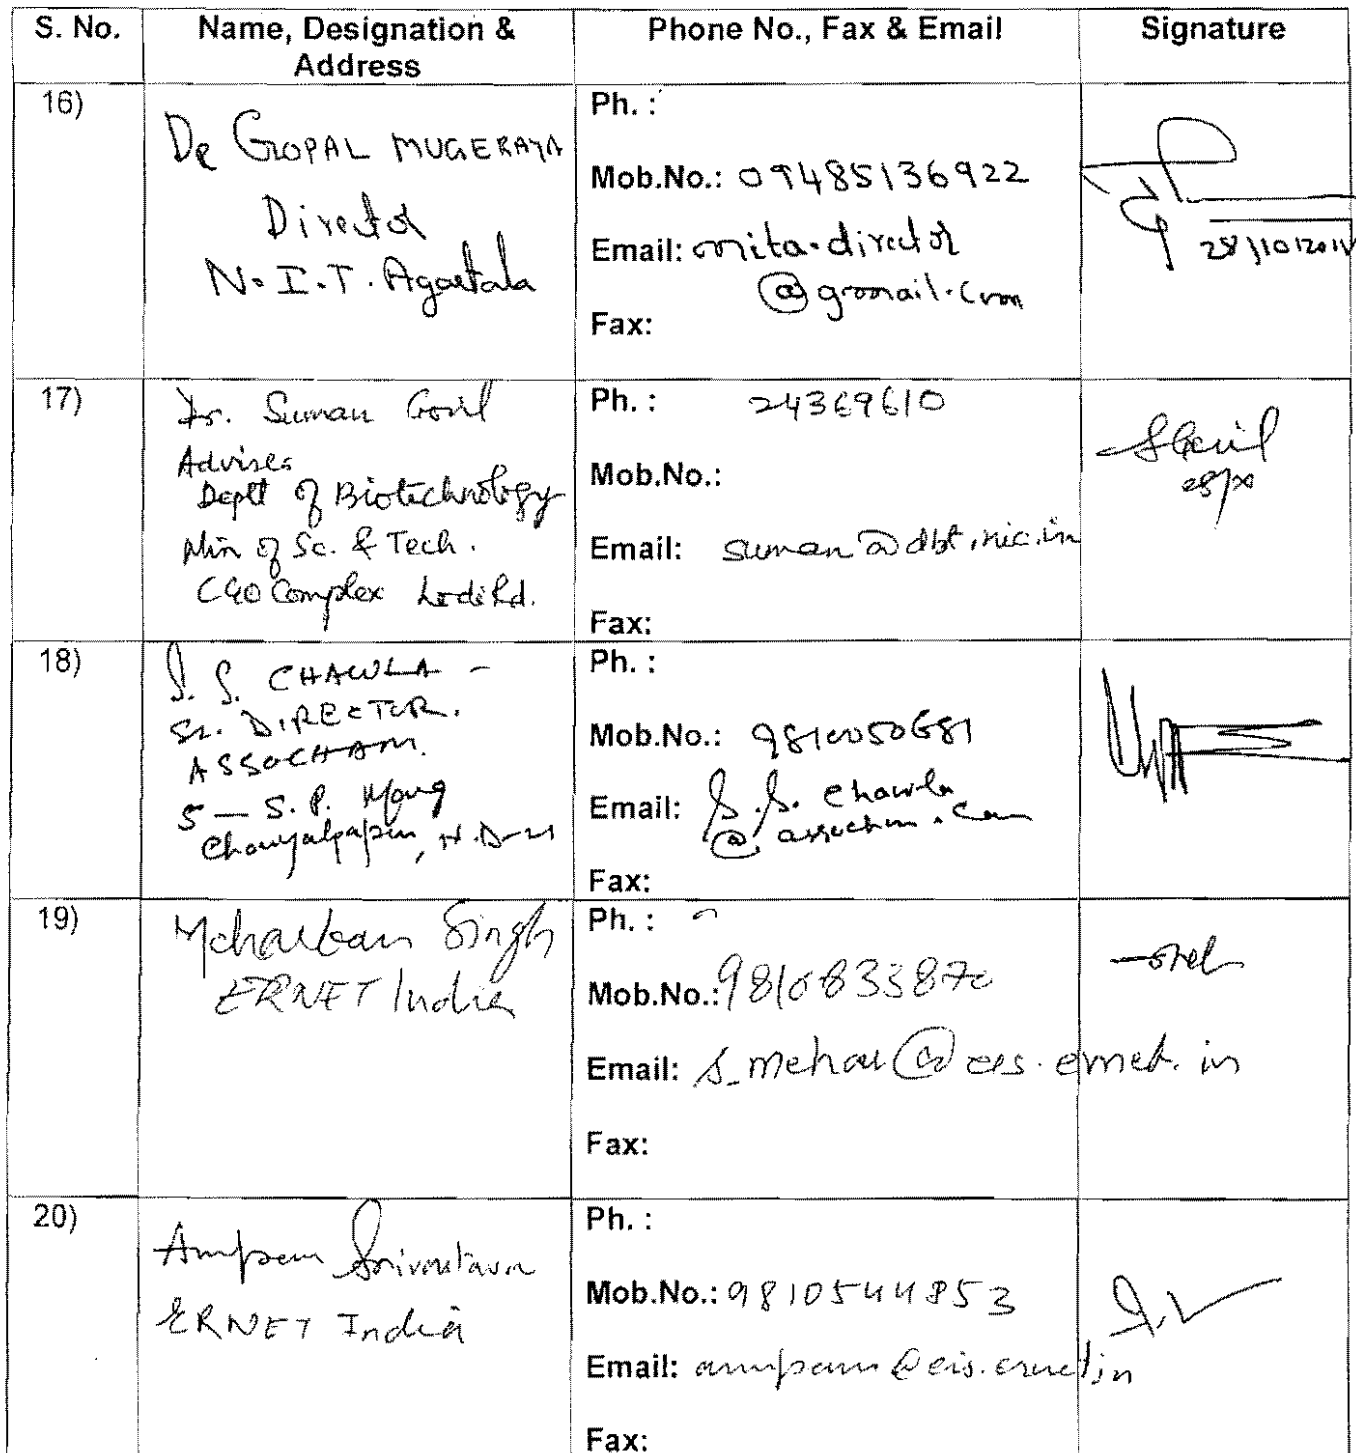 S. No. Name, Designation & Address Phone No., Fax & Email Signature
16)
Dr GOPAL MUGERAYA
Director
N.I.T. Agartala
Ph. :
Mob.No.: 09485136922
Email: nita.director
@gmail.com
Fax:
28/10/2011
17)
Dr. Suman Govil
Adviser
Deptt of Biotechnology
Min of Sc. & Tech.
CGO Complex Lodi Rd.
Ph. : 24369610
Mob.No.:
Email: suman@dbt.nic.in
Fax:
18)
S. S. CHAWLA -
Sr. DIRECTOR.
ASSOCHAM.
5 — S. P. Marg
N.D-21
Ph. :
Mob.No.: 9810050681
Email: S.S. Chawla
Fax:
19)
Meharban Singh
ERNET India
Ph. :
Mob.No.: 9810833870
Email: s_mehar@eis.ernet.in
Fax:
20)
Anupam Srivastava
ERNET India
Ph. :
Mob.No.: 9810544853
Email: anupam@eis.ernet.in
Fax: